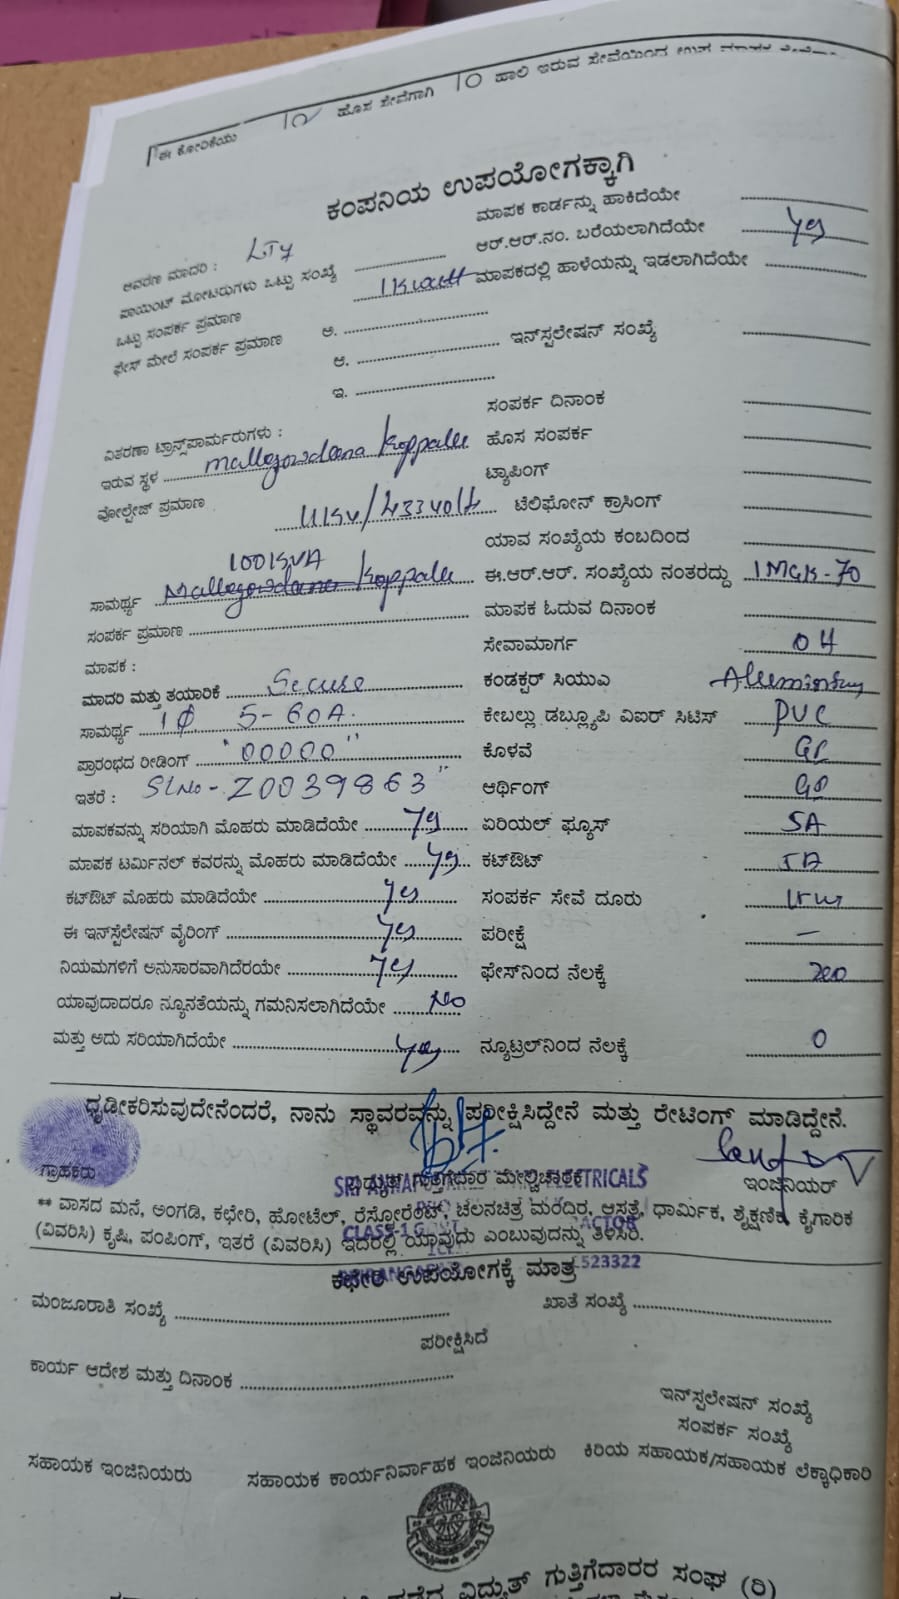 ಈ ಕೋರಿಕೆಯು ಹೊಸ ಸೇವೆಗಾಗಿ ಹಾಲಿ ಇರುವ ಸೇವೆಯಿಂದ
ಕಂಪನಿಯ ಉಪಯೋಗಕ್ಕಾಗಿ
ಮಾಪಕ ಕಾರ್ಡನ್ನು ಹಾಕಿದೆಯೇ
ಆವರಣ ಮಾದರಿ : ಆರ್.ಆರ್.ನಂ. ಬರೆಯಲಾಗಿದೆಯೇ Yes
ಪಾಯಿಂಟ್ ಮೋಟರುಗಳು ಒಟ್ಟು ಸಂಖ್ಯೆ ಮಾಪಕದಲ್ಲಿ ಹಾಳೆಯನ್ನು ಇಡಲಾಗಿದೆಯೇ
ಒಟ್ಟು ಸಂಪರ್ಕ ಪ್ರಮಾಣ
ಫೇಸ್ ಮೇಲೆ ಸಂಪರ್ಕ ಪ್ರಮಾಣ ಅ. ಇನ್‌ಸ್ಟಲೇಷನ್ ಸಂಖ್ಯೆ
ಆ.
ಇ. ಸಂಪರ್ಕ ದಿನಾಂಕ
ವಿತರಣಾ ಟ್ರಾನ್ಸ್‌ಪಾರ್ಮರುಗಳು : ಹೊಸ ಸಂಪರ್ಕ
ಇರುವ ಸ್ಥಳ Mallegowdana Koppalu ಟ್ಯಾಪಿಂಗ್
ವೋಲ್ಟೇಜ್ ಪ್ರಮಾಣ 11KV/433 Volt ಟೆಲಿಫೋನ್ ಕ್ರಾಸಿಂಗ್
100KVA ಯಾವ ಸಂಖ್ಯೆಯ ಕಂಬದಿಂದ
ಸಾಮರ್ಥ್ಯ Mallegowdana Koppalu ಈ.ಆರ್.ಆರ್. ಸಂಖ್ಯೆಯ ನಂತರದ್ದು 1MGK-70
ಸಂಪರ್ಕ ಪ್ರಮಾಣ ಮಾಪಕ ಓದುವ ದಿನಾಂಕ
ಮಾಪಕ : ಸೇವಾಮಾರ್ಗ OH
ಮಾದರಿ ಮತ್ತು ತಯಾರಿಕೆ Secure ಕಂಡಕ್ಟರ್ ಸಿಯುಎ
ಸಾಮರ್ಥ್ಯ 1φ 5-60A. ಕೇಬಲ್ಲು ಡಬ್ಲ್ಯೂಪಿ ವಿಐರ್ ಸಿಟಿಸ್ PVC
ಪ್ರಾರಂಭದ ರೀಡಿಂಗ್ "00000" ಕೊಳವೆ
ಇತರೆ : SLNo - Z0039863" ಆರ್ಥಿಂಗ್
ಮಾಪಕವನ್ನು ಸರಿಯಾಗಿ ಮೊಹರು ಮಾಡಿದೆಯೇ Yes ಏರಿಯಲ್ ಫ್ಯೂಸ್ 5A
ಮಾಪಕ ಟರ್ಮಿನಲ್ ಕವರನ್ನು ಮೊಹರು ಮಾಡಿದೆಯೇ Yes ಕಟ್‌ಔಟ್
ಕಟ್‌ಔಟ್ ಮೊಹರು ಮಾಡಿದೆಯೇ Yes ಸಂಪರ್ಕ ಸೇವೆ ದೂರು
ಈ ಇನ್‌ಸ್ಟೆಲೇಷನ್ ವೈರಿಂಗ್ Yes ಪರೀಕ್ಷೆ –
ನಿಯಮಗಳಿಗೆ ಅನುಸಾರವಾಗಿದೆರಯೇ Yes ಫೇಸ್‌ನಿಂದ ನೆಲಕ್ಕೆ
ಯಾವುದಾದರೂ ನ್ಯೂನತೆಯನ್ನು ಗಮನಿಸಲಾಗಿದೆಯೇ No
ಮತ್ತು ಅದು ಸರಿಯಾಗಿದೆಯೇ Yes ನ್ಯೂಟ್ರಲ್‌ನಿಂದ ನೆಲಕ್ಕೆ 0
ಧೃಡೀಕರಿಸುವುದೇನೆಂದರೆ, ನಾನು ಸ್ಥಾವರವನ್ನು ಪರೀಕ್ಷಿಸಿದ್ದೇನೆ ಮತ್ತು ರೇಟಿಂಗ್ ಮಾಡಿದ್ದೇನೆ.
ಗ್ರಾಹಕರು ವಿದ್ಯುತ್ ಗುತ್ತಿಗೆದಾರ ಮೇಲ್ವಿಚಾರಕ ಇಂಜಿನಿಯರ್
** ವಾಸದ ಮನೆ, ಅಂಗಡಿ, ಕಛೇರಿ, ಹೋಟೆಲ್, ರೆಸ್ಟೋರೆಂಟ್, ಚಲನಚಿತ್ರ ಮಂದಿರ, ಆಸ್ಪತ್ರೆ, ಧಾರ್ಮಿಕ, ಶೈಕ್ಷಣಿಕ, ಕೈಗಾರಿಕ
(ವಿವರಿಸಿ) ಕೃಷಿ, ಪಂಪಿಂಗ್, ಇತರೆ (ವಿವರಿಸಿ) ಇದರಲ್ಲಿ ಯಾವುದು ಎಂಬುವುದನ್ನು ತಿಳಿಸಿರಿ.
ಕಛೇರಿ ಉಪಯೋಗಕ್ಕೆ ಮಾತ್ರ 523322
ಮಂಜೂರಾತಿ ಸಂಖ್ಯೆ ಖಾತೆ ಸಂಖ್ಯೆ
ಪರೀಕ್ಷಿಸಿದೆ
ಕಾರ್ಯ ಆದೇಶ ಮತ್ತು ದಿನಾಂಕ
ಇನ್‌ಸ್ಟಲೇಷನ್ ಸಂಖ್ಯೆ
ಸಂಪರ್ಕ ಸಂಖ್ಯೆ
ಸಹಾಯಕ ಇಂಜಿನಿಯರು ಸಹಾಯಕ ಕಾರ್ಯನಿರ್ವಾಹಕ ಇಂಜಿನಿಯರು ಕಿರಿಯ ಸಹಾಯಕ/ಸಹಾಯಕ ಲೆಕ್ಕಾಧಿಕಾರಿ
ವಿದ್ಯುತ್ ಗುತ್ತಿಗೆದಾರರ ಸಂಘ (ರಿ)